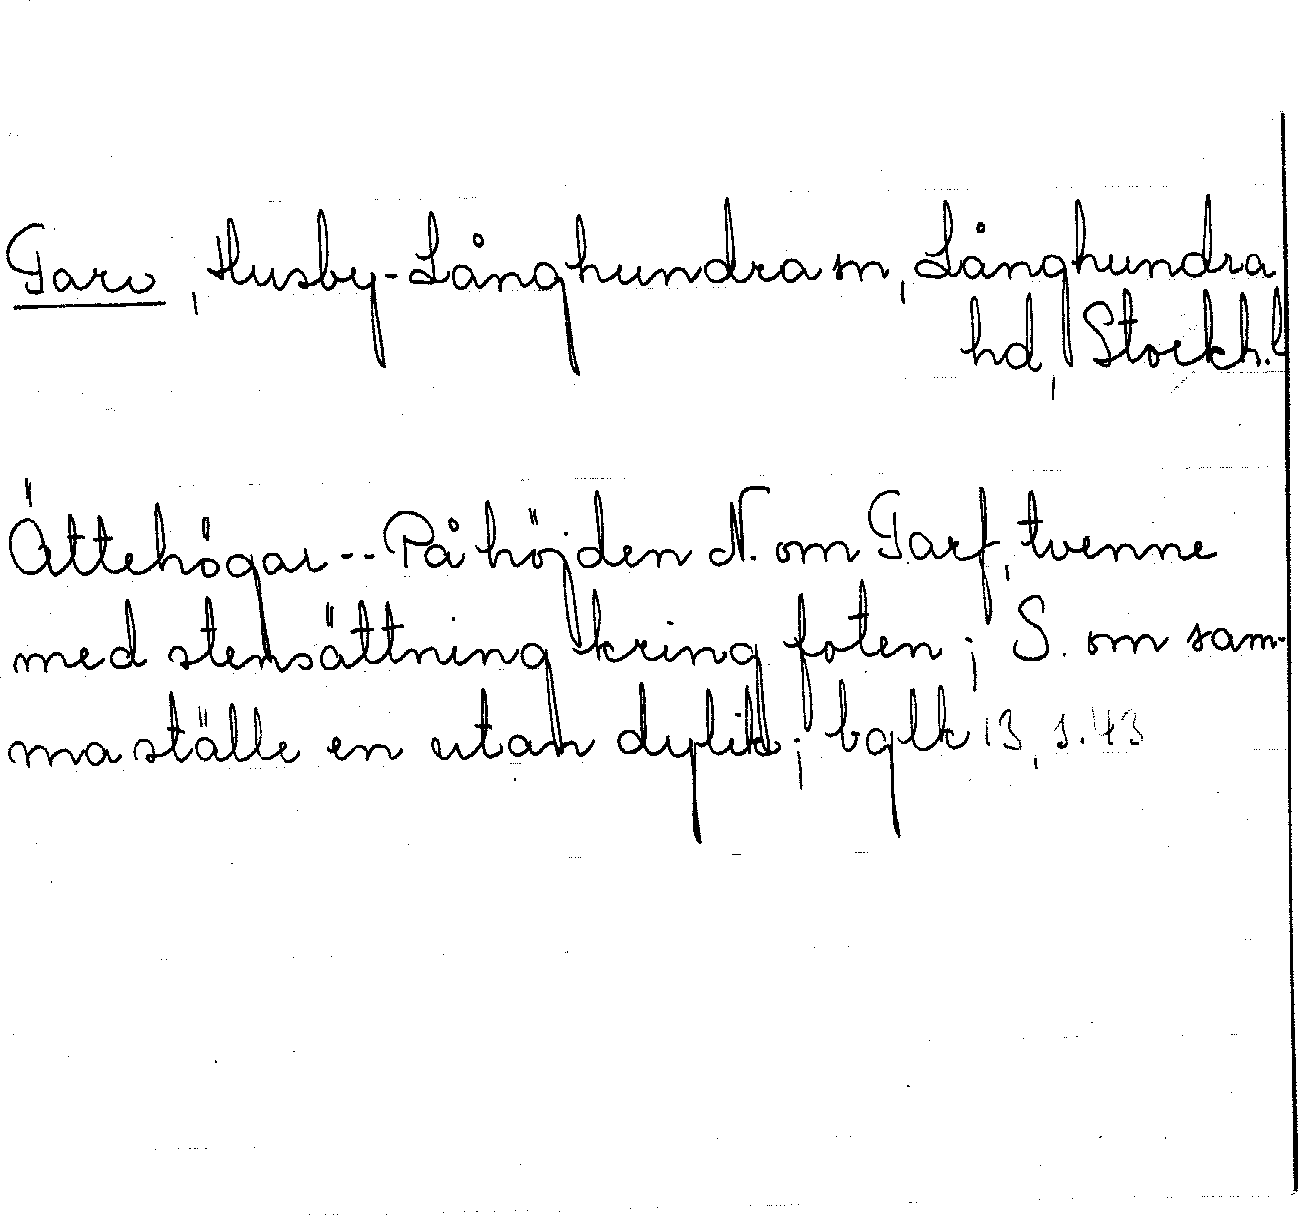 Garv, Husby-Långhundra sn, Långhundra
hd, Stockh. l
Ättehögar -- På höjden N. om Garf, tvenne
med stensättning kring foten; S. om sam-
ma ställe en utan dylik; bglk 13, s. 43